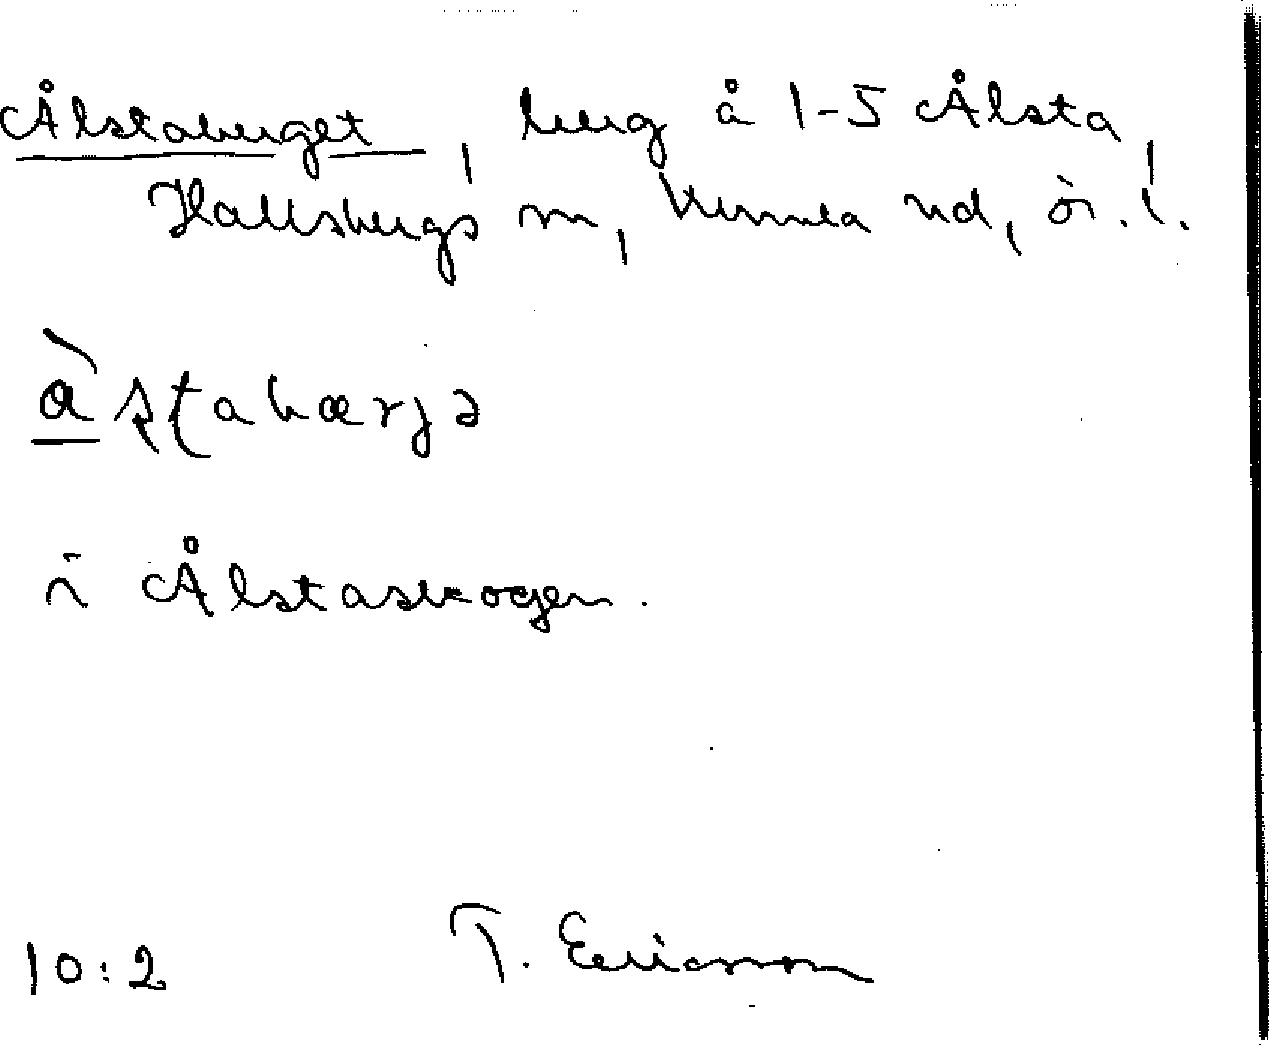 Ålstaberget, berg å 1-5 Ålsta,
Hallsbergs sn, Kumla hd, ör. l.
àʂʈabærjə
i Ålstaskogen.
10:2 T. Ericsson